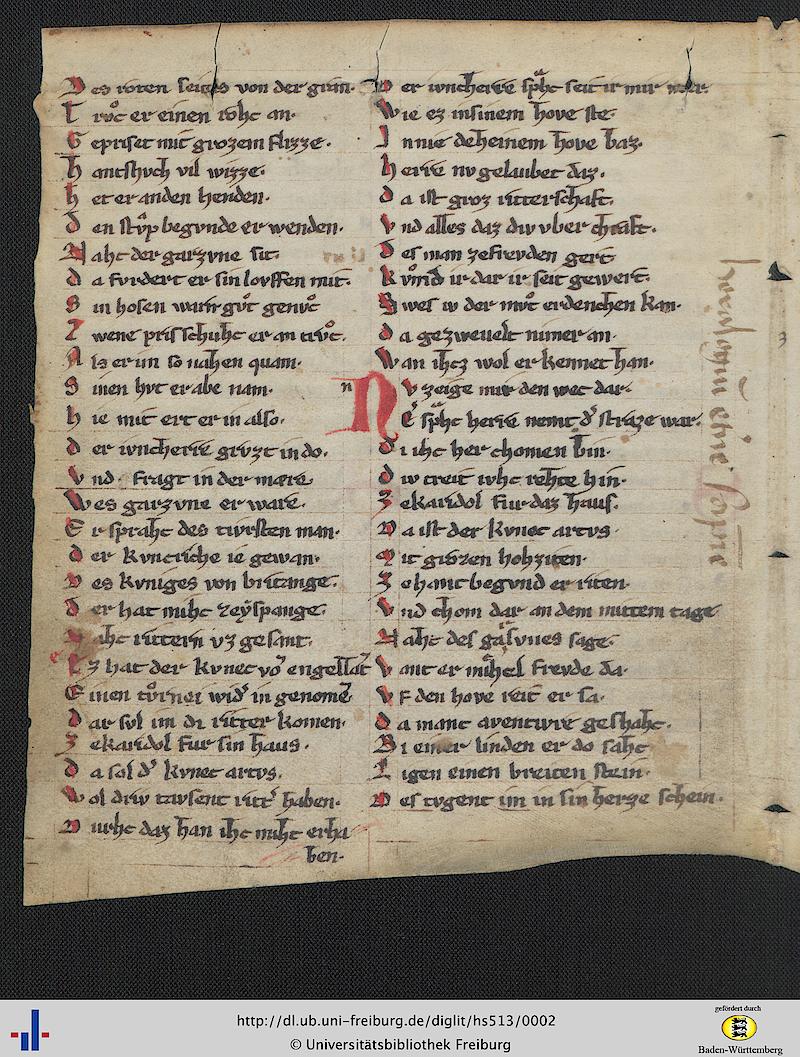 Des roten seites von der grān·
Trvͦc er einen rohc an·
Gepriset mit grozem flizze·
hantshvch vil wizze·
het er an den henden·
den stv̂p begvnde er wenden·
Naht der garzvne sit·
da fvrdert er sin lovffen mit·
Sin hosen warn gvͦt genvͦc
Zwene pris schuhc er an trvͦc·
Als er im so nahen quam·
Sinen hvt er abe nam·
hie mit ert er in also·
der ivncherre grvzt in do·
vnd fragt in der mære
Wes garzvne er ware·
Er spraht des tivrsten man·
der kvncriche ie gewan·
Des kvniges von britange·
der hat mihc zeÿspange·
Naht rittern vz gesant·
Ez hat der kvnec vō engellāt
Einen tvͦrnei wid' in genomē·
Dar sol im di ritter komen·
Zekaridol fur sin haus·
da sol d' kvnec artvs·
Wol driw tavsent ritt' haben·
Durhc daz han ihc miht erha
ben·
Der ivncherre spͣhc seit ir mir mer·
Wie ez in sinem hove ste·
In nie deheinem hove baz·
herre nv gelaubet daz·
da ist groz ritterschaft·
vnd alles daz div vber chraft·
des man ze frevden gert
kvͦmd ir dar ir seit gewert·
Swes iv der mvͦt erdenchen kan·
da gezwevelt nimer an·
Wan ihcz wol erkennet han·
n Nv zeige mir den wec dar·
Er spͣhc herre nemt d' straze war·
di ihc her chomen bin·
div treit ivhc rehte hin·
Zekaridol fur daz haus·
Da ist der kvnec artvs·
Mit grozen hohziten·
Zehant begvnd er riten·
Vnd chom dar an dem mittem tage
Naht des gasvnes sage·
Vant er mihel frevde da·
Vf den hove reit er sa·
da manc aventivre geshaht·
Bi einer linden er do saht
Ligen einen breiten stein·
Des tvgent im in sin herze schein·
http://dl.ub.uni-freiburg.de/diglit/hs513/0002
© Universitätsbibliothek Freiburg
gefördert durch
Baden-Württemberg